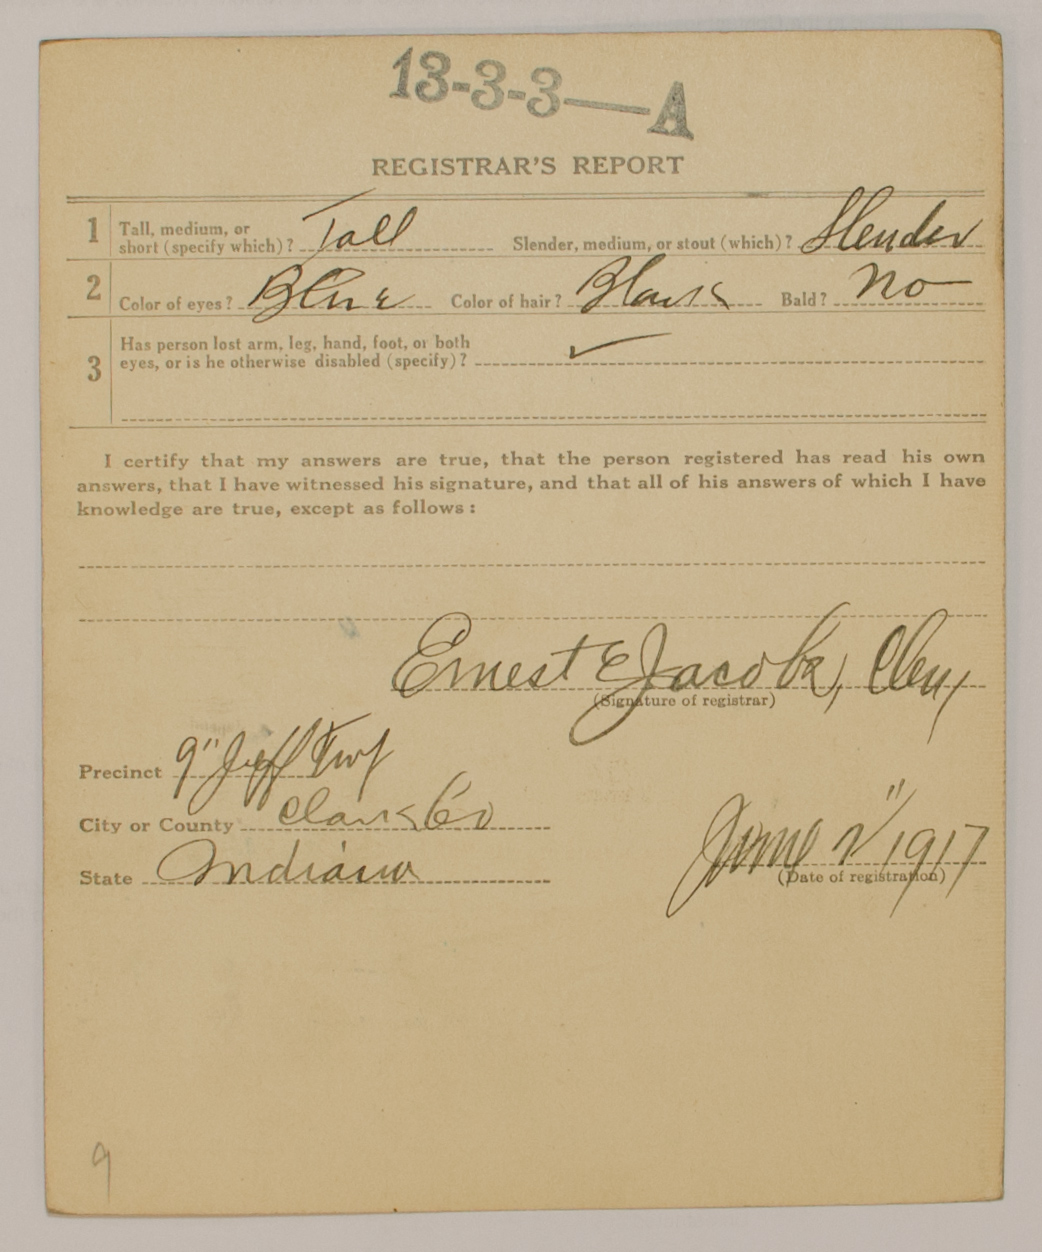 13-3-3—A
REGISTRAR'S REPORT
1 Tall, medium, or short (specify which)? Tall Slender, medium, or stout (which)? Slender
2 Color of eyes? Blue Color of hair? Black Bald? No
3 Has person lost arm, leg, hand, foot, or both
eyes, or is he otherwise disabled (specify)? ✓
I certify that my answers are true, that the person registered has read his own
answers, that I have witnessed his signature, and that all of his answers of which I have
knowledge are true, except as follows:
Ernest E Jacobs,
(Signature of registrar)
Precinct 9" Jeff Twp
City or County Clark Co
State Indiana
June 1917
(Date of registration)
9